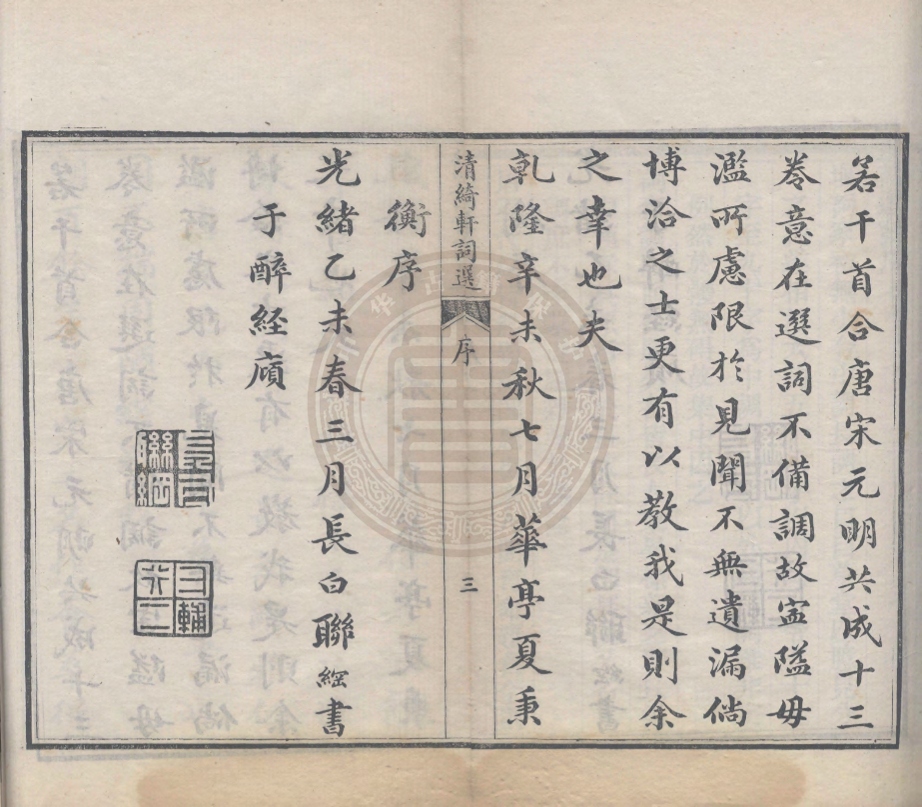 若干首合唐宋元明共成十三
卷意在選詞不備調故寧隘毋
濫所慮限於見聞不無遺漏倘
博洽之士更有以教我是則余
之幸也夫
乾隆辛未秋七月華亭夏秉
清綺軒詞選
序
三
衡序
光緒乙未春三月長白聯書
于醉経廎